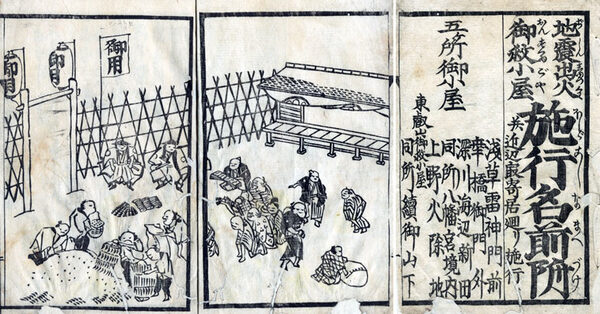 地震出火
御救小屋
施行名前附
并近辺最寄居廻り施行
五所御小屋
浅草雷神門前
幸橋御門外
深川海辺新田
同所八幡宮境内
上野火除地
東叡山御救小屋
同所續御山下
御用
御用
御用